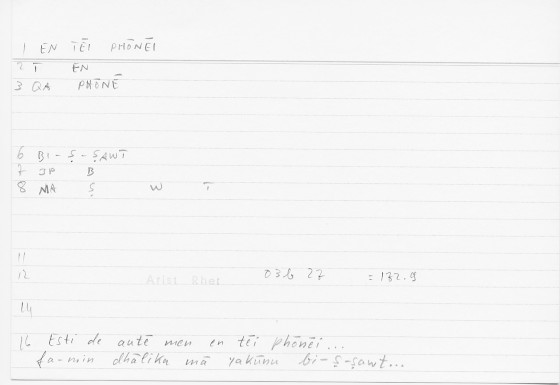 1 EN TĒI PHŌNĒI
2 T EN
3 QA PHŌNĒ
6 BI - Ṣ - ṢAWT
7 JP B
8 MA Ṣ W T
11
12 Arist Rhet 03b 27 = 182.9
14
16 Esti de autē men en tēi phōnēi...
fa-min dhālika mā yakūnu bi-ṣ-ṣawt...